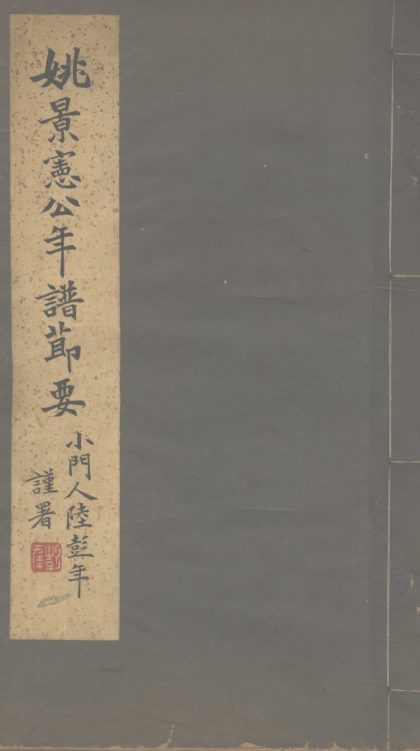 姚景憲公年譜莭要
小門人陸彭年
謹署
彭年